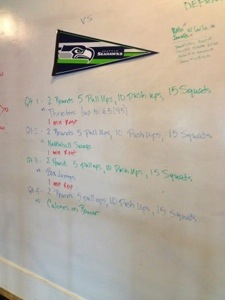 VS
SEAHAWKS
Qt 1 - 2 Rounds 5 Pull Ups, 10 Push Ups, 15 Squats
" Thrusters
1 min Rest
Qt 2 - 2 Rounds 5 Pull Ups, 10 Push Ups, 15 Squats
" Kettlebell Swings
1 min Rest
Qt 3 - 2 Round 5 pull ups, 10 Push Ups, 15 Squats
" Box Jumps
1 min Rest
Qt 4 - 2 Rounds 5 pull ups, 10 Push Ups, 15 Squats
" Calories on Rower